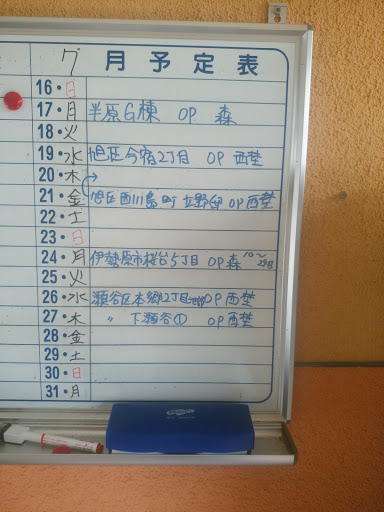 グ 月予定表
16・日
17・月 半原G棟 OP 森
18・火
19・水 旭区今宿2丁目 OP 西埜
20・木
21・金 旭区西川島町 OP西埜
22・土
23・日
24・月 伊勢原市桜台5丁目 OP森 10〜
25・火
26・水 瀬谷区本郷2丁目 OP 西埜
27・木 〃 下瀬谷① OP西埜
28・金
29・土
30・日
31・月